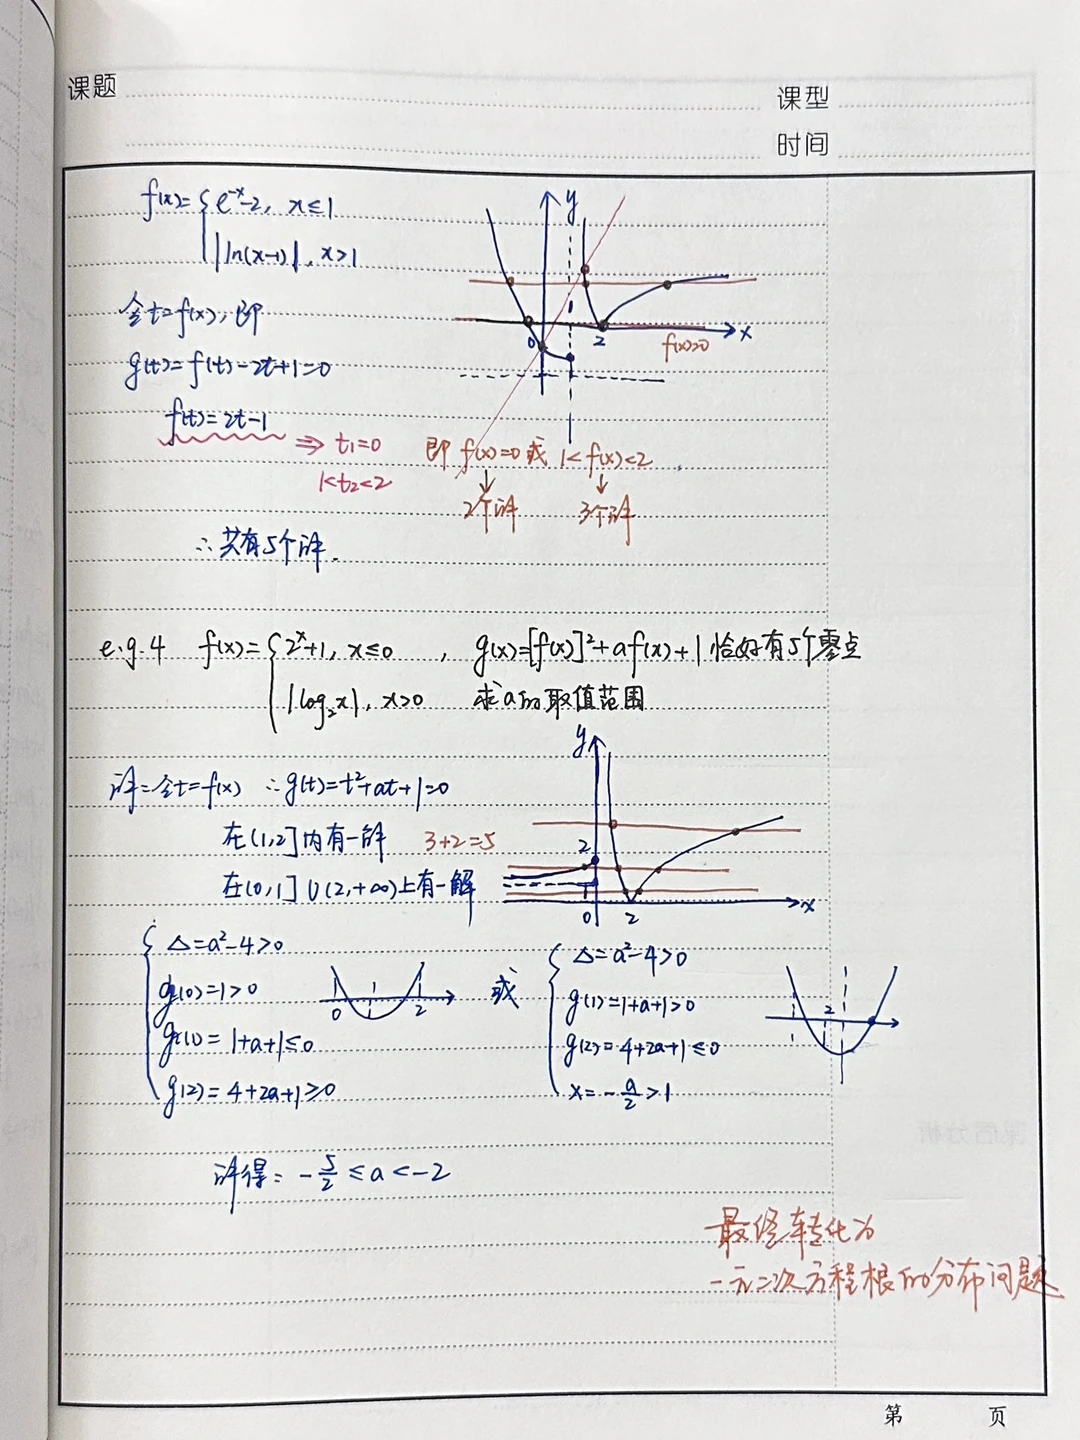 课题
课型
时间
f(x)={e^{-x}-2, x≤1
|ln(x-1)|, x>1
令t=f(x),即
g(t)=f(t)-2t+1=0
f(t)=2t-1
⇒ t₁=0
1<t₂<2
y
1
0
2
x
f(x)=0
即 f(x)=0 或 1<f(x)<2
↓ ↓
2个解 3个解
∴共有5个解.
e.g.4 f(x)={2^x+1, x≤0 , g(x)=[f(x)]²+af(x)+1 恰好有5个零点
|log₂x|, x>0 求a的取值范围
解:令t=f(x) ∴g(t)=t²+at+1=0
在(1,2]内有一解 3+2=5
在(0,1]∪(2,+∞)上有一解
y
2
1
0
2
x
{Δ=a²-4>0
g(0)=1>0
g(1)=1+a+1≤0
g(2)=4+2a+1≥0
0 1 2
或
{Δ=a²-4>0
g(1)=1+a+1>0
g(2)=4+2a+1≤0
x=-a/2>1
2
解得:-5/2≤a<-2
最终转化为
一元二次方程根的分布问题
第 页